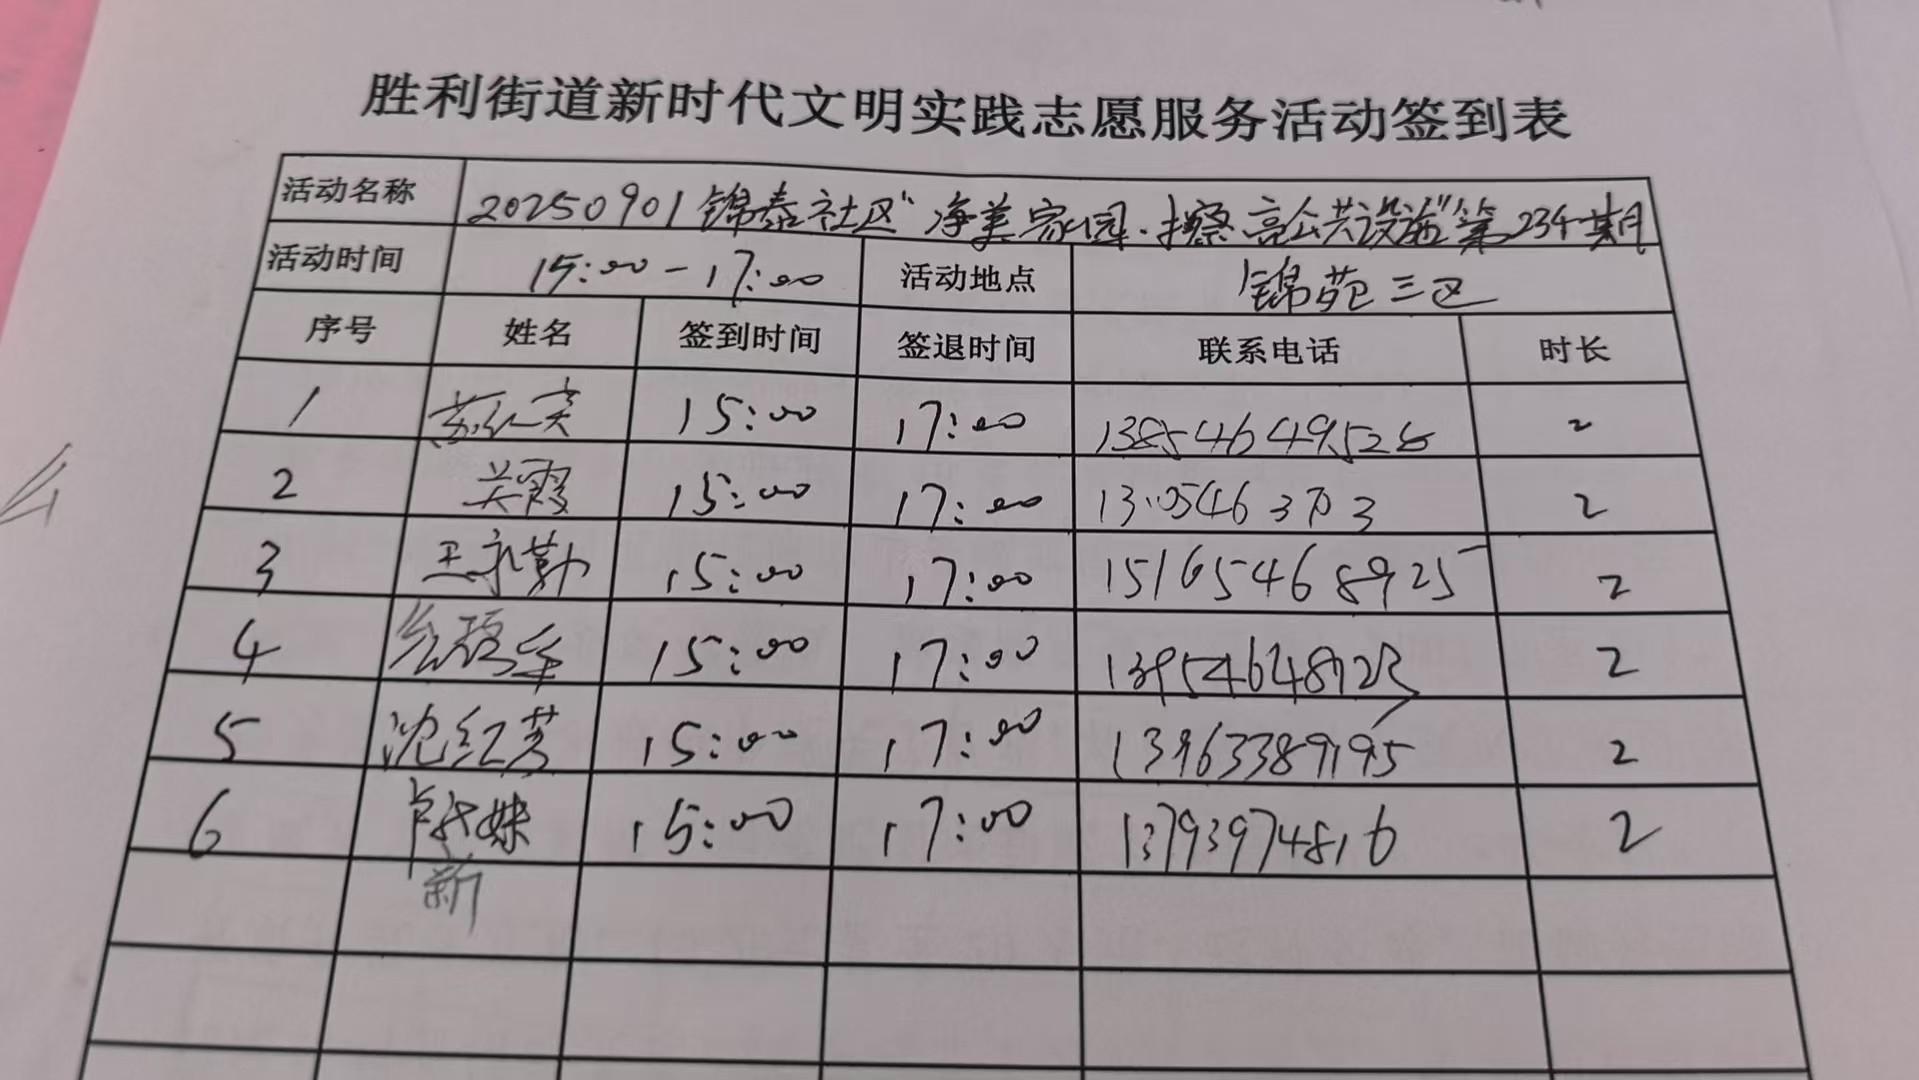 胜利街道新时代文明实践志愿服务活动签到表
活动名称 20250901锦泰社区“净美家园·擦亮公共设施”第234期
活动时间 15:00-17:00 活动地点 锦苑三区
序号 姓名 签到时间 签退时间 联系电话 时长
1 15:00 17:00 2
2 关霞 15:00 17:00 2
3 王永勤 15:00 17:00 15165468925 2
4 15:00 17:00 2
5 沈红芳 15:00 17:00 13963389195 2
6 15:00 17:00 13793974816 2
新